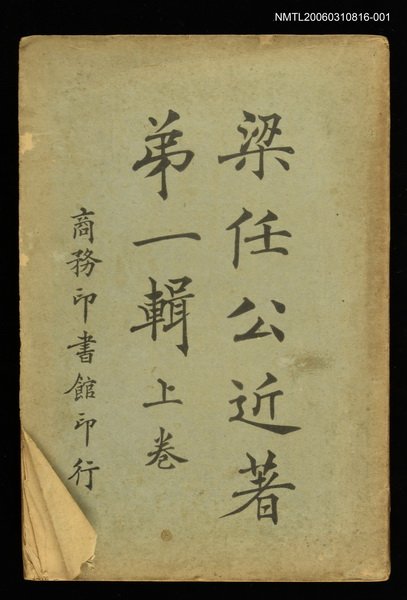 NMTL20060310816-001
梁任公近著
弟一輯上卷
商務印書館印行